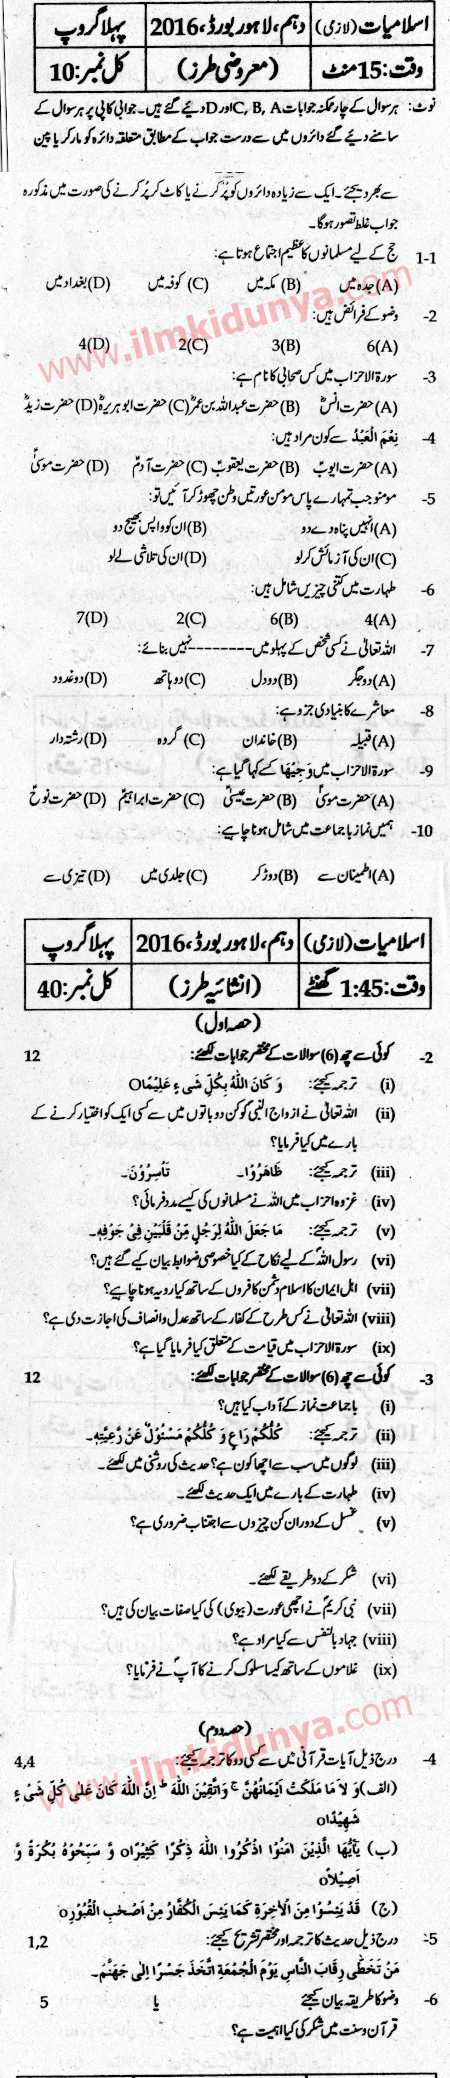 اسلامیات (لازمی) دہم، لاہور بورڈ، 2016 پہلا گروپ
وقت: 15 منٹ (معروضی طرز) کل نمبر: 10
نوٹ: ہر سوال کے چار ممکنہ جوابات A، B، C اور D دیئے گئے ہیں۔ جوابی کاپی پر ہر سوال کے
سامنے دیئے گئے دائروں میں سے درست جواب کے مطابق متعلقہ دائرہ کو مارکر یا پین
سے بھر دیجئے۔ ایک سے زیادہ دائروں کو پُر کرنے یا کاٹ کر پُر کرنے کی صورت میں مذکورہ
جواب غلط تصور ہوگا۔
1-1 حج کے لیے مسلمانوں کا عظیم اجتماع ہوتا ہے:
(A) جدہ میں (B) مکہ میں (C) کوفہ میں (D) بغداد میں
www.ilmkidunya.com
2- وضو کے فرائض ہیں:
(A) 6 (B) 3 (C) 2 (D) 4
3- سورۃ الاحزاب میں کس صحابی کا نام ہے:
(A) حضرت انسؓ (B) حضرت عبداللہ بن عمرؓ (C) حضرت ابوہریرہؓ (D) حضرت زیدؓ
4- نِعْمَ الْعَبْدُ سے کون مراد ہیں:
(A) حضرت ایوبؑ (B) حضرت یعقوبؑ (C) حضرت آدمؑ (D) حضرت موسیٰؑ
5- مومنو جب تمہارے پاس مومن عورتیں وطن چھوڑ کر آئیں تو:
(A) انہیں پناہ دے دو (B) ان کو واپس بھیج دو
(C) ان کی آزمائش کر لو (D) ان کی تلاشی لے لو
6- طہارت میں کتنی چیزیں شامل ہیں:
(A) 4 (B) 6 (C) 2 (D) 7
7- اللہ تعالیٰ نے کسی شخص کے پہلو میں -------- نہیں بنائے:
(A) دو جگر (B) دو دل (C) دو ہاتھ (D) دو غدود
8- معاشرے کا بنیادی جزو ہے:
(A) قبیلہ (B) خاندان (C) گروہ (D) رشتہ دار
9- سورۃ الاحزاب میں وَجِیْهًا کسے کہا گیا ہے:
(A) حضرت موسیٰؑ (B) حضرت عیسیٰؑ (C) حضرت ابراہیمؑ (D) حضرت نوحؑ
10- ہمیں نماز با جماعت میں شامل ہونا چاہیے:
(A) اطمینان سے (B) دوڑ کر (C) جلدی میں (D) تیزی سے
اسلامیات (لازمی) دہم، لاہور بورڈ، 2016 پہلا گروپ
وقت: 1:45 گھنٹے (انشائیہ طرز) کل نمبر: 40
(حصہ اول)
2- کوئی سے چھ (6) سوالات کے مختصر جوابات لکھئے: 12
(i) ترجمہ کیجئے: وَ كَانَ اللّٰهُ بِكُلِّ شَیْءٍ عَلِیْمًاO
(ii) اللہ تعالیٰ نے ازواج النبیؐ کو کن دو باتوں میں سے کسی ایک کو اختیار کرنے کے
بارے میں کیا فرمایا؟
(iii) ترجمہ کیجئے: ظَاهَرُوْا۔ تَاْسِرُوْنَ۔
(iv) غزوہ احزاب میں اللہ نے مسلمانوں کی کیسے مدد فرمائی؟
(v) ترجمہ کیجئے: مَا جَعَلَ اللّٰهُ لِرَجُلٍ مِّنْ قَلْبَیْنِ فِیْ جَوْفِهٖ۔
(vi) رسول اللہؐ کے لیے نکاح کے کیا خصوصی ضوابط بیان کیے گئے ہیں؟
(vii) اہل ایمان کا اسلام دشمن کافروں کے ساتھ کیا رویہ ہونا چاہیے؟
(viii) اللہ تعالیٰ نے کس طرح کے کفار کے ساتھ عدل و انصاف کی اجازت دی ہے؟
(ix) سورۃ الاحزاب میں قیامت کے متعلق کیا فرمایا گیا ہے؟
3- کوئی سے چھ (6) سوالات کے مختصر جوابات لکھئے: 12
(i) باجماعت نماز کے آداب کیا ہیں؟
(ii) ترجمہ کیجئے: كُلُّكُمْ رَاعٍ وَ كُلُّكُمْ مَسْئُوْلٌ عَنْ رَّعِیَّتِهٖ۔
(iii) لوگوں میں سب سے اچھا کون ہے؟ حدیث کی روشنی میں لکھئے۔
(iv) طہارت کے بارے میں ایک حدیث لکھئے۔
(v) غسل کے دوران کن چیزوں سے اجتناب ضروری ہے؟
(vi) شکر کے دو طریقے لکھئے۔
(vii) نبی کریمؐ نے اچھی عورت (بیوی) کی کیا صفات بیان کی ہیں؟
(viii) جہاد بالنفس سے کیا مراد ہے؟
(ix) غلاموں کے ساتھ کیسا سلوک کرنے کا آپؐ نے فرمایا؟
(حصہ دوم)
www.ilmkidunya.com
4- درج ذیل آیات قرآنی میں سے کسی دو کا ترجمہ کیجئے: 4,4
(الف) وَ لَا مَا مَلَكَتْ اَیْمَانُهُنَّ ۚ وَاتَّقِیْنَ اللّٰهَ ؕ اِنَّ اللّٰهَ كَانَ عَلٰى كُلِّ شَیْءٍ
شَهِیْدًاO
(ب) یٰٓاَیُّهَا الَّذِیْنَ اٰمَنُوا اذْكُرُوا اللّٰهَ ذِكْرًا كَثِیْرًاO وَّ سَبِّحُوْهُ بُكْرَةً وَّ
اَصِیْلًاO
(ج) قَدْ یَئِسُوْا مِنَ الْاٰخِرَةِ كَمَا یَئِسَ الْكُفَّارُ مِنْ اَصْحٰبِ الْقُبُوْرِO
5- درج ذیل حدیث کا ترجمہ اور مختصر تشریح کیجئے: 1,2
مَنْ تَخَطّٰى رِقَابَ النَّاسِ یَوْمَ الْجُمُعَةِ اتَّخَذَ جَسْرًا اِلٰى جَهَنَّمَ۔
6- وضو کا طریقہ بیان کیجئے یا 5
قرآن و سنت میں شکر کی کیا اہمیت ہے؟